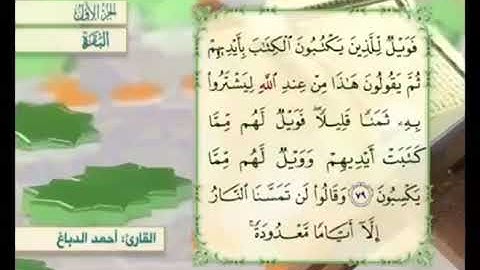 الجزء الأول
البقرة
فَوَيْلٌ لِّلَّذِينَ يَكْتُبُونَ الْكِتَٰبَ بِأَيْدِيهِمْ
ثُمَّ يَقُولُونَ هَٰذَا مِنْ عِندِ اللَّهِ لِيَشْتَرُوا۟
بِهِۦ ثَمَنًا قَلِيلًا ۖ فَوَيْلٌ لَّهُم مِّمَّا
كَتَبَتْ أَيْدِيهِمْ وَوَيْلٌ لَّهُم مِّمَّا
يَكْسِبُونَ ٧٩ وَقَالُوا۟ لَن تَمَسَّنَا النَّارُ
إِلَّآ أَيَّامًا مَّعْدُودَةً ۚ
القارئ: أحمد الدباغ